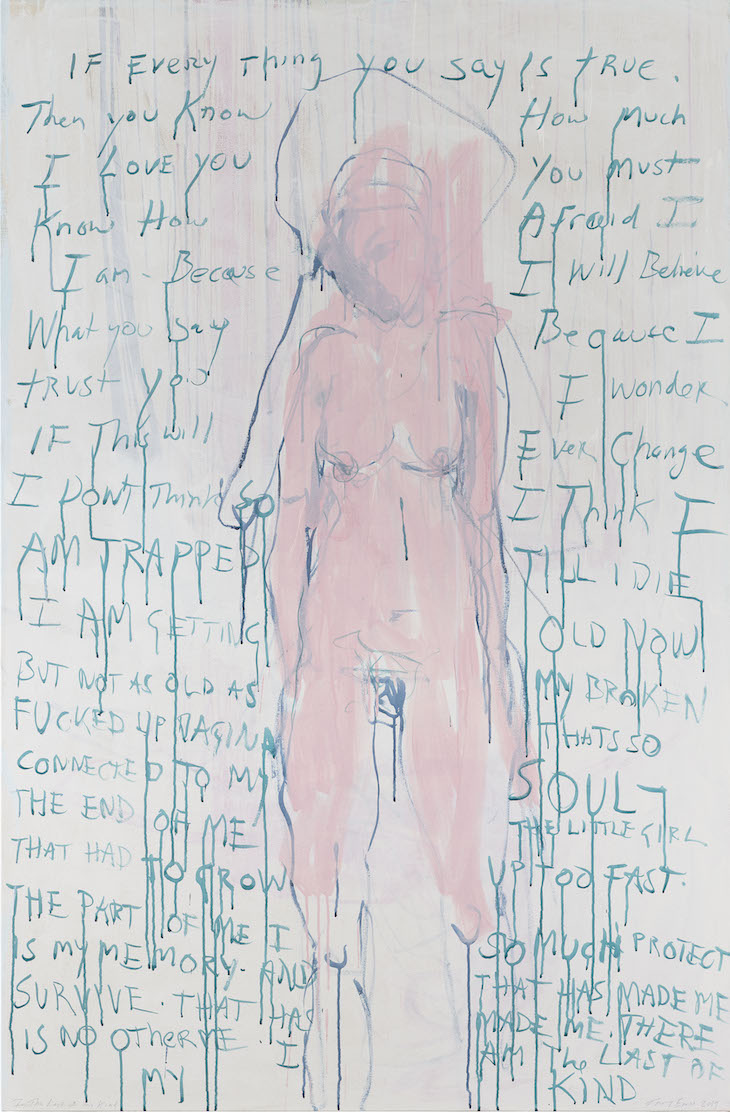 IF EVERY THING you say IS TRUE.
Then you Know How Much
I LOVE YOU You Must
Know How Afraid I
I am - Because I Will Believe
What you say Because I
trust you I wonder
IF This will Ever Change
I DONT Think SO I Think I
AM TRAPPED TILL I DIE
I AM GETTING OLD NOW
BUT NOT AS OLD AS MY BROKEN
FUCKED UP VAGINA THATS SO
CONNECTED TO MY SOUL -
THE END OF ME THE LITTLE GIRL
THAT HAD TO GROW UP TOO FAST.
THE PART OF ME I SO MUCH PROTECT
IS MY MEMORY. AND THAT HAS MADE ME
SURVIVE. THAT HAS MADE ME. THERE
IS NO OTHER ME. I AM The LAST OF
MY KIND